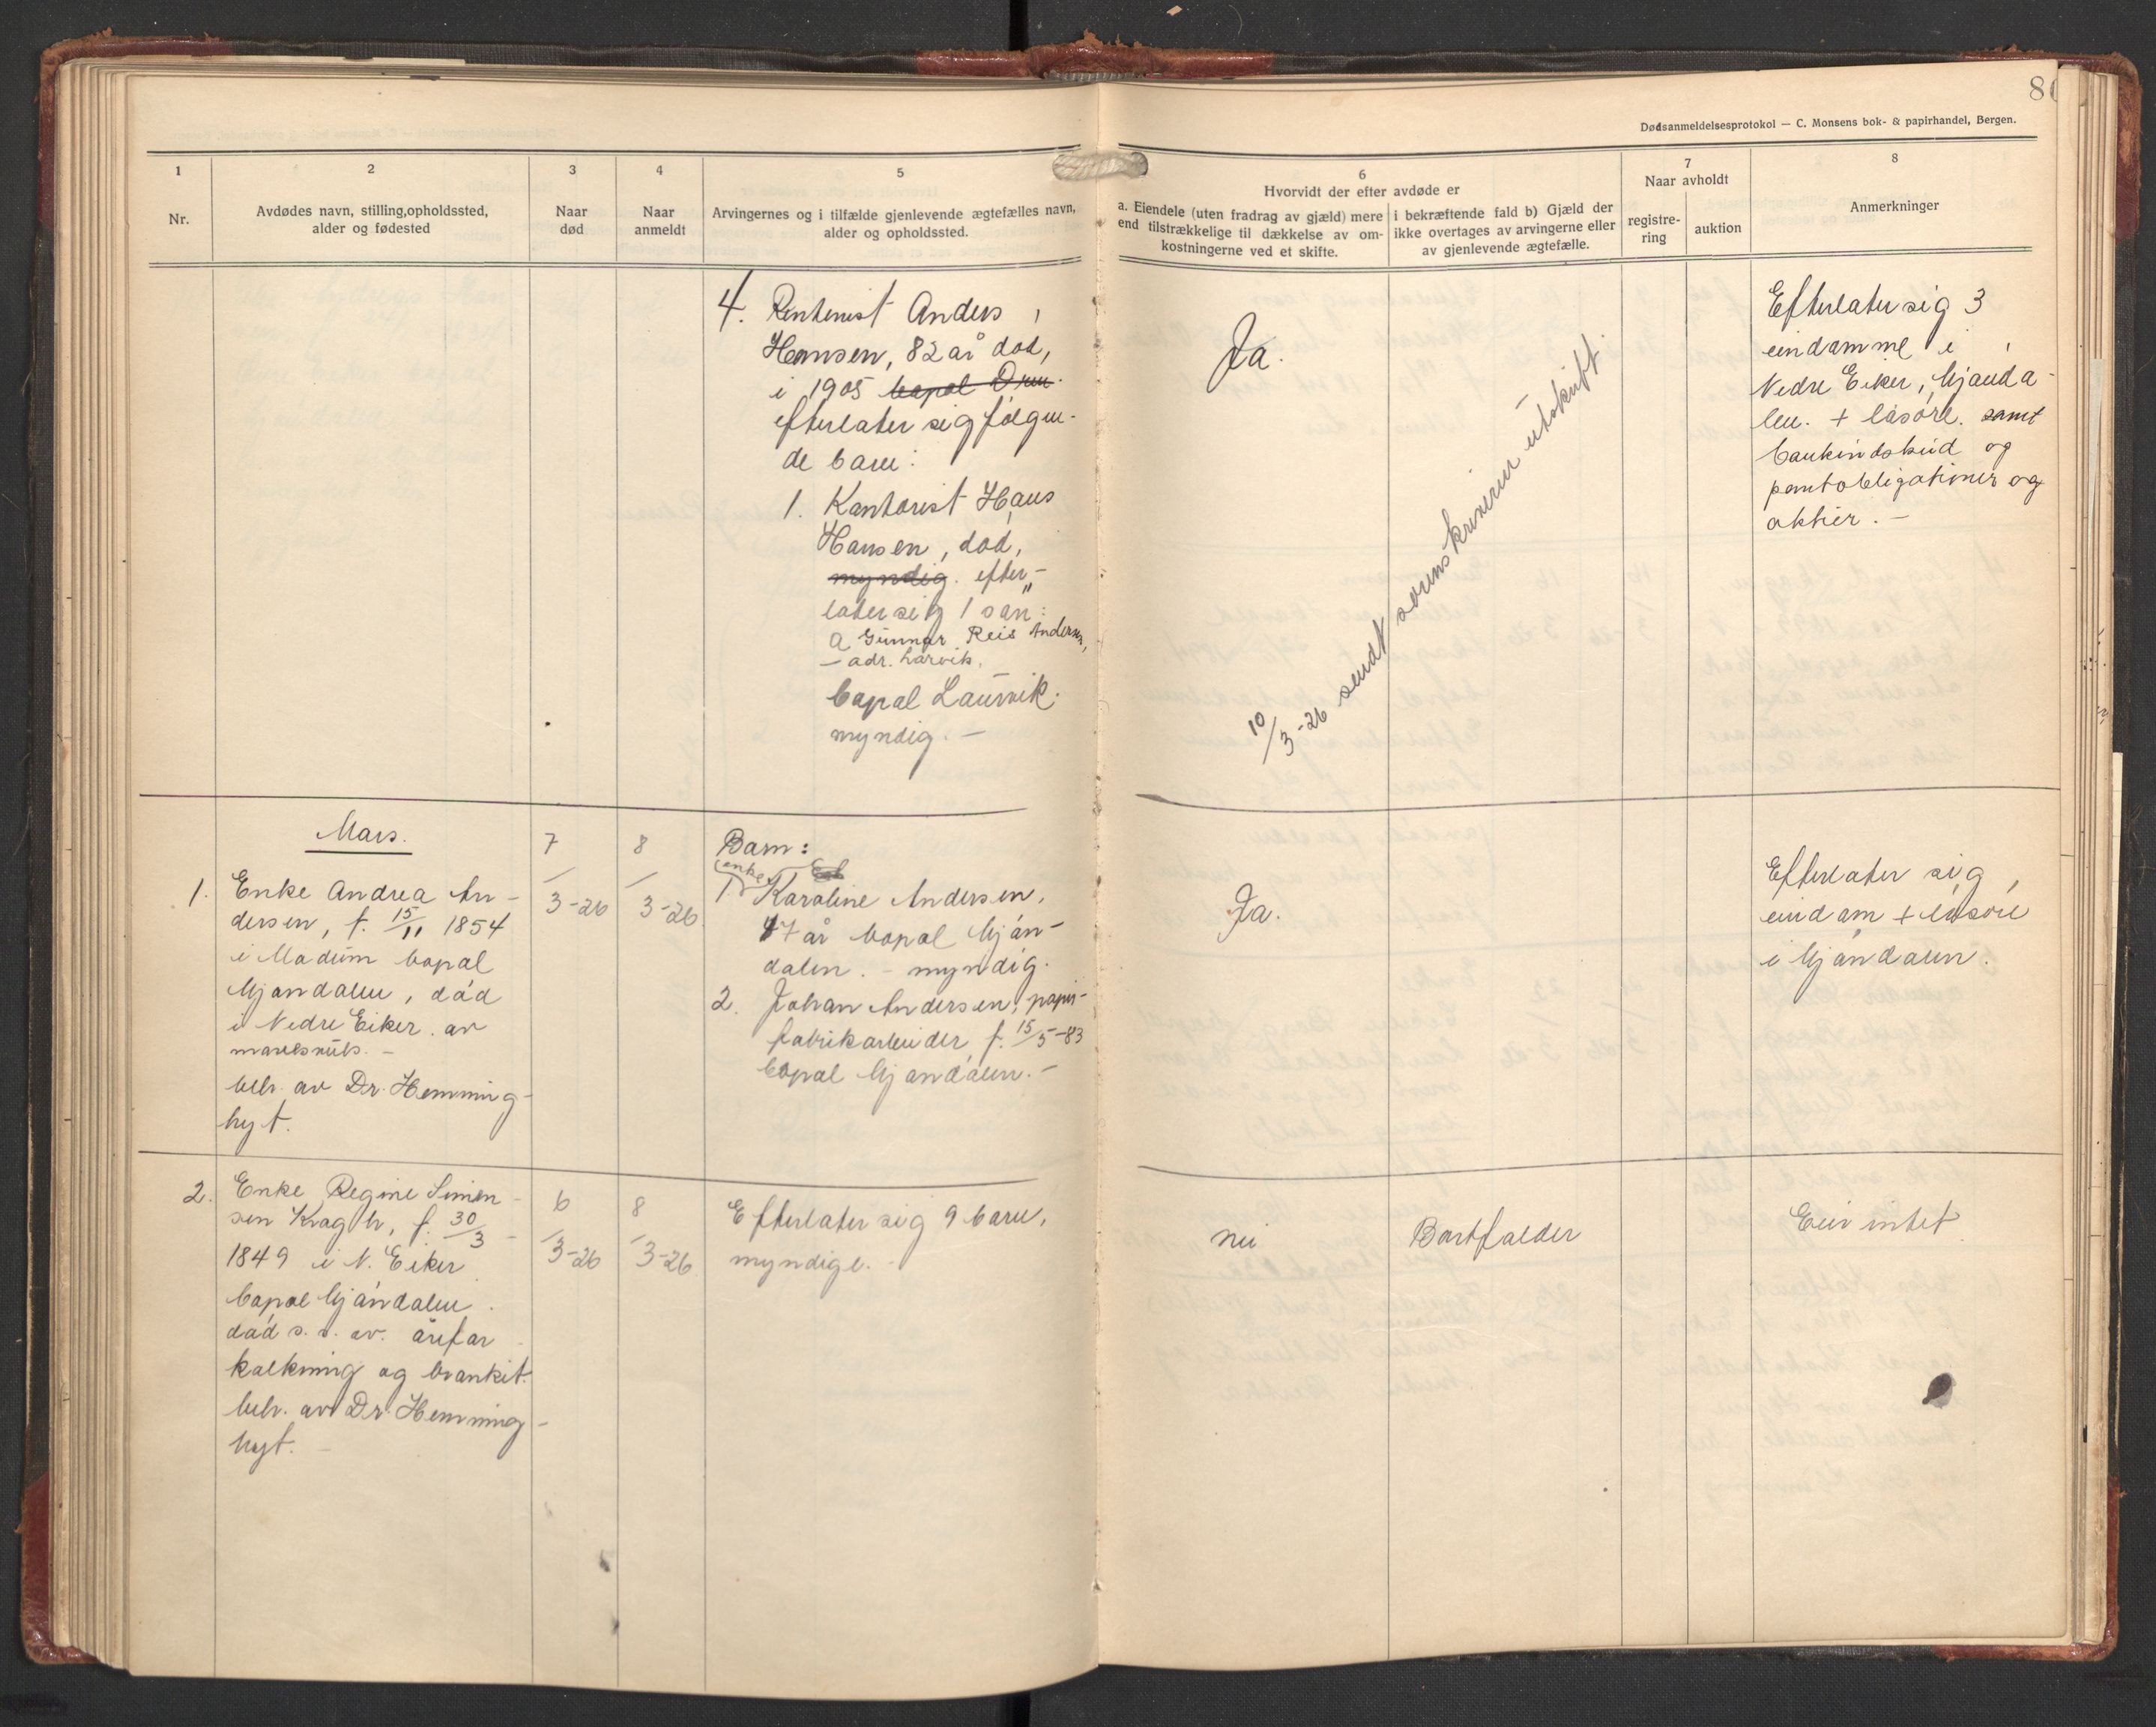 80
Dødsanmeldelsesprotokol — C. Monsens bok- & papirhandel, Bergen.
1
Nr.
2
Avdødes navn, stilling, opholdssted,
alder og fødested
3
Naar
død
4
Naar
anmeldt
5
Arvingernes og i tilfælde gjenlevende ægtefælles navn,
alder og opholdssted.
6
Hvorvidt der efter avdøde er
a. Eiendele (uten fradrag av gjæld) mere
end tilstrækkelige til dækkelse av om-
kostningerne ved et skifte.
i bekræftende fald b) Gjæld der
ikke overtages av arvingerne eller
av gjenlevende ægtefælle.
7
Naar avholdt
registre-
ring
auktion
8
Anmerkninger
4. Rentenist Anders
Hansen, 82 år død,
i 1905 bopæl
efterlater sig følgen-
de barn:
1. Kontorist Hans
Hansen, død,
myndig. efter-
later sig 1 søn:
a Gunnar Reis Andersen,
— adr. Larvik.
bopæl Laurvik.
myndig. —
Ja.
10/3-26 sendt sorenskriveren utskrift.
Efterlater sig 3
eiendomme i
Nedre Eiker, Mjønda-
len. + løsøre. samt
bankindskud og
pantobligationer og
aktier. —
Mars.
1.
Enke Andrea An-
dersen, f. 15/11 1854
i Modum bopæl
Mjøndalen, død
i Nedre Eiker. av
beh. av Dr. Hemming-
hyt.
7/3-26
8/3-26
Barn:
(enke)
1 Karoline Andersen,
47 år bopæl Mjøn-
dalen. — myndig.
2. Johan Andersen, papir-
fabrikarbeider, f. 15/5-83
bopæl Mjøndalen. —
Ja.
Efterlater sig
eiendom + løsøre
i Mjøndalen.
2.
Enke Regine Simen-
sen Kragh, f. 30/3-
1849 i N. Eiker
bopæl Mjøndalen.
død s. s. av. årefor
kalkning og bronkit.
beh. av Dr. Hemming-
hyt. —
6/3-26
8/3-26
Efterlater sig 9 barn,
myndige. —
nei
Bortfalder
Eier intet